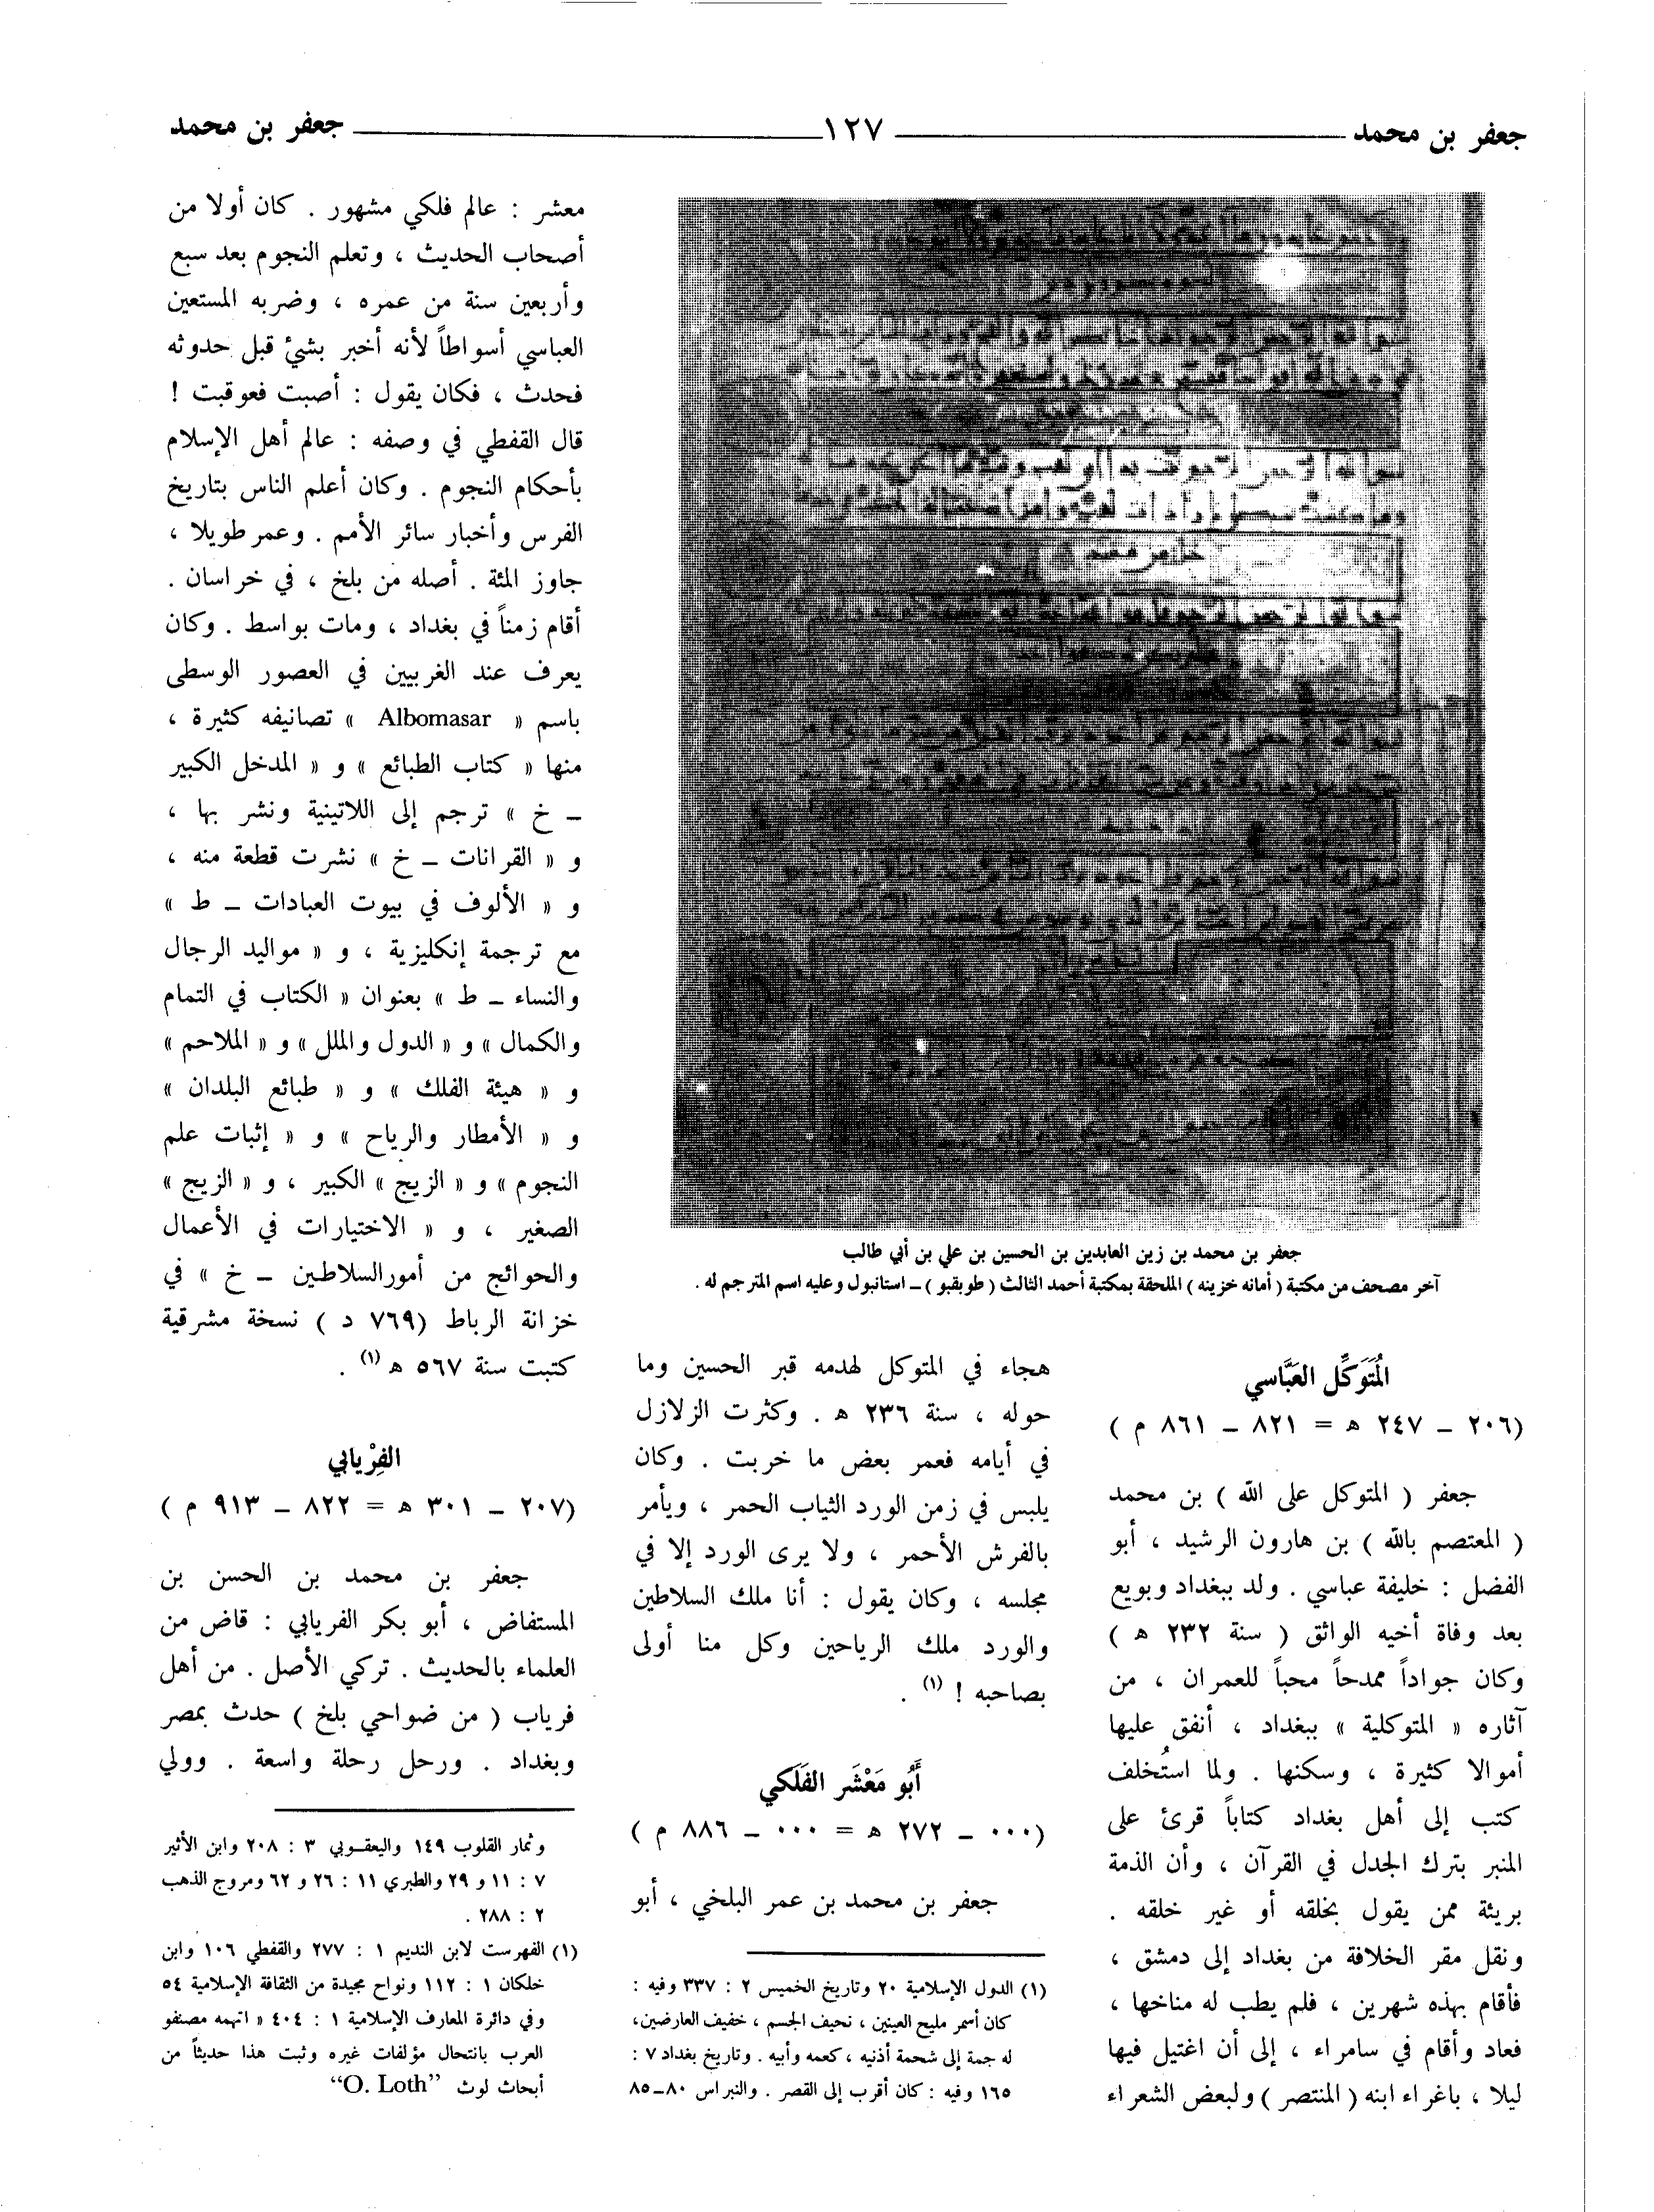 جعفر بن محمد ١٢٧ جعفر بن محمد
جعفر بن محمد بن زين العابدين بن الحسين بن علي بن أبي طالب
آخر مصحف من مكتبة ( أمانه خزينه ) الملحقة بمكتبة أحمد الثالث ( طوبقبو ) ــ استانبول وعليه اسم المترجم له .
المُتَوَكِّل العَبَّاسي
(٢٠٦ ــ ٢٤٧ ه = ٨٢١ ــ ٨٦١ م )
جعفر ( المتوكل على الله ) بن محمد
( المعتصم بالله ) بن هارون الرشيد ، أبو
الفضل : خليفة عباسي . ولد ببغداد وبويع
بعد وفاة أخيه الواثق ( سنة ٢٣٢ ه )
وكان جواداً ممدحاً محباً للعمران ، من
آثاره « المتوكلية » ببغداد ، أنفق عليها
أموالا كثيرة ، وسكنها . ولما استُخلف
كتب إلى أهل بغداد كتاباً قرئ على
المنبر بترك الجدل في القرآن ، وأن الذمة
بريئة ممن يقول بخلقه أو غير خلقه .
ونقل مقر الخلافة من بغداد إلى دمشق ،
فأقام بهذه شهرين ، فلم يطب له مناخها ،
فعاد وأقام في سامراء ، إلى أن اغتيل فيها
ليلا ، باغراء ابنه ( المنتصر ) ولبعض الشعراء
هجاء في المتوكل لهدمه قبر الحسين وما
حوله ، سنة ٢٣٦ ه . وكثرت الزلازل
في أيامه فعمر بعض ما خربت . وكان
يلبس في زمن الورد الثياب الحمر ، ويأمر
بالفرش الأحمر ، ولا يرى الورد إلا في
مجلسه ، وكان يقول : أنا ملك السلاطين
والورد ملك الرياحين وكل منا أولى
بصاحبه ! (١) .
أَبُو مَعْشَر الفَلَكي
(٠٠٠ ــ ٢٧٢ ه = ٠٠٠ ــ ٨٨٦ م )
جعفر بن محمد بن عمر البلخي ، أبو
(١) الدول الإسلامية ٢٠ وتاريخ الخميس ٢ : ٣٣٧ وفيه :
كان أسمر مليح العينين ، نحيف الجسم ، خفيف العارضين،
له جمة إلى شحمة أذنيه ، كعمه وأبيه . وتاريخ بغداد ٧ :
١٦٥ وفيه : كان أقرب إلى القصر . والنبراس ٨٠ــ٨٥
معشر : عالم فلكي مشهور . كان أولا من
أصحاب الحديث ، وتعلم النجوم بعد سبع
وأربعين سنة من عمره ، وضربه المستعين
العباسي أسواطاً لأنه أخبر بشئ قبل حدوثه
فحدث ، فكان يقول : أصبت فعوقبت !
قال القفطي في وصفه : عالم أهل الإسلام
بأحكام النجوم . وكان أعلم الناس بتاريخ
الفرس وأخبار سائر الأمم . وعمر طويلا ،
جاوز المئة . أصله من بلخ ، في خراسان .
أقام زمناً في بغداد ، ومات بواسط . وكان
يعرف عند الغربيين في العصور الوسطى
باسم « Albomasar » تصانيفه كثيرة ،
منها « كتاب الطبائع » و « المدخل الكبير
ــ خ » ترجم إلى اللاتينية ونشر بها ،
و « القرانات ــ خ » نشرت قطعة منه ،
و « الألوف في بيوت العبادات ــ ط »
مع ترجمة إنكليزية ، و « مواليد الرجال
والنساء ــ ط » بعنوان « الكتاب في التمام
والكمال » و « الدول والملل » و « الملاحم »
و « هيئة الفلك » و « طبائع البلدان »
و « الأمطار والرياح » و « إثبات علم
النجوم » و « الزيج » الكبير ، و « الزيج »
الصغير ، و « الاختيارات في الأعمال
والحوائج من أمورالسلاطين ــ خ » في
خزانة الرباط (٧٦٩ د ) نسخة مشرقية
كتبت سنة ٥٦٧ ه (١) .
الفِرْيابي
(٢٠٧ ــ ٣٠١ ه = ٨٢٢ ــ ٩١٣ م )
جعفر بن محمد بن الحسن بن
المستفاض ، أبو بكر الفريابي : قاض من
العلماء بالحديث . تركي الأصل . من أهل
فرياب ( من ضواحي بلخ ) حدث بمصر
وبغداد . ورحل رحلة واسعة . وولي
وثمار القلوب ١٤٩ واليعقـوبي ٣ : ٢٠٨ وابن الأثير
٧ : ١١ و ٢٩ والطبري ١١ : ٢٦ و ٦٢ ومروج الذهب
٢ : ٢٨٨ .
(١) الفهرست لابن النديم ١ : ٢٧٧ والقفطي ١٠٦ وابن
خلكان ١ : ١١٢ ونواح مجيدة من الثقافة الإسلامية ٥٤
وفي دائرة المعارف الإسلامية ١ : ٤٠٤ « اتهمه مصنفو
العرب بانتحال مؤلفات غيره وثبت هذا حديثاً من
أبحاث لوث “O. Loth”